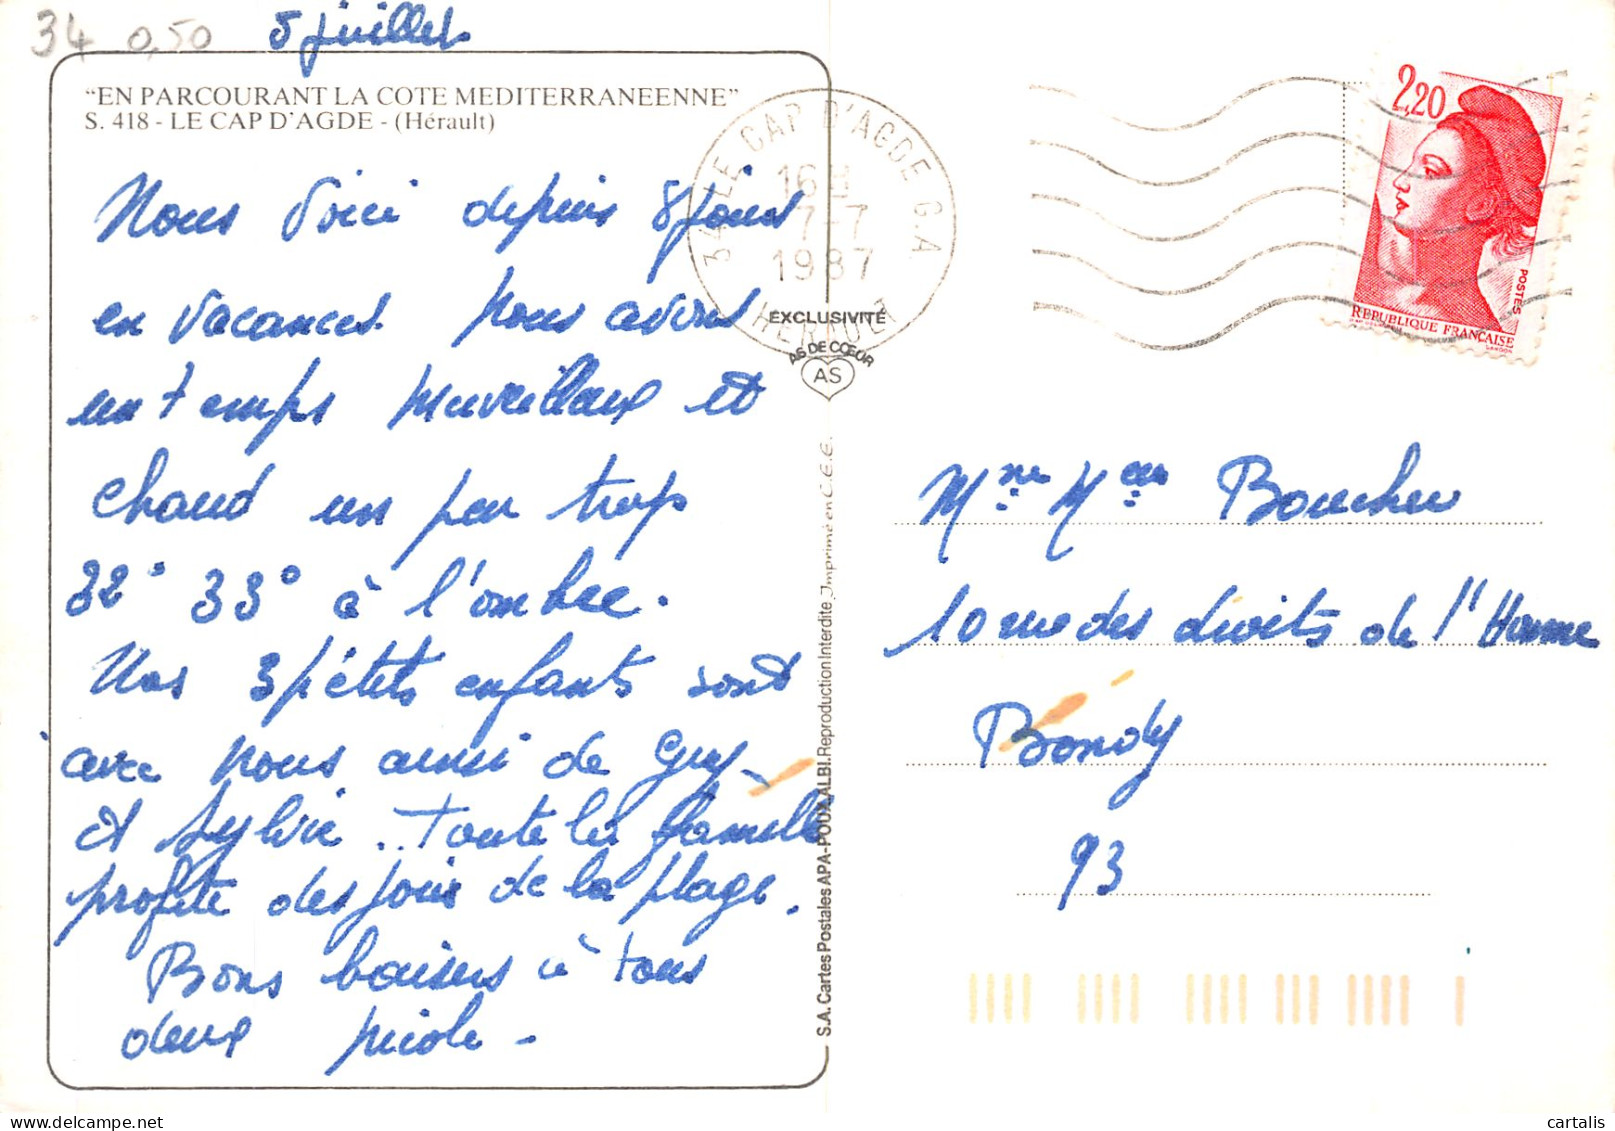 34 0,50 5 juillet
"EN PARCOURANT LA COTE MEDITERRANEENNE"
S. 418 - LE CAP D'AGDE - (Hérault)
Nous Voici depuis 8 jours
en vacances. Nous avons
un temps merveilleux et
chaud un peu trop
32° 33° à l'ombre.
Nos 3 petits enfants sont
avec nous ainsi de Guy
et Sylvie.. Toute la famille
profite des joies de la plage.
Bons baisers à tous
deux Nicole -
34 LE CAP D'AGDE C.A
16H
7-7
1987
HERAULT
EXCLUSIVITÉ
AS DE CŒUR
AS
S.A. Cartes Postales APA-POUX ALBI. Reproduction Interdite Imprimé en C.E.E.
2,20
POSTES
REPUBLIQUE FRANÇAISE
Mme Mr Boucher
10 rue des droits de l'Homme
Bondy
93
cartalis
delcampe.net